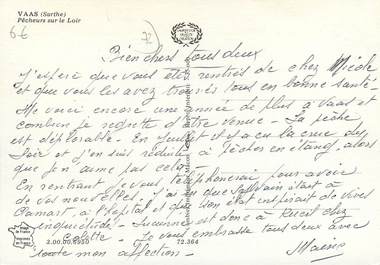 VAAS (Sarthe)
Pêcheurs sur le Loir
6€
72
Bien chers tous deux
J'espère que vous êtes rentrés de chez Nicole
et que vous les avez trouvés tous en bonne santé.
Me voici encore une année de plus à Vaas et
combien je regrette d'être venue. La pêche
est déplorable. En juillet il y a eu la crue du
Loir et j'en suis réduite à pêcher en étang, alors
que je n'aime pas cela.
En rentrant je vous téléphonerai pour avoir
de vos nouvelles. J'ai su que était à
Clamart, à l'hôpital et que son état inspirait de vives
inquiétudes. Lucienne est donc à Rueil chez
Colette. Je vous embrasse tous deux avec
toute mon affection.
3.00.00.6950
72.364